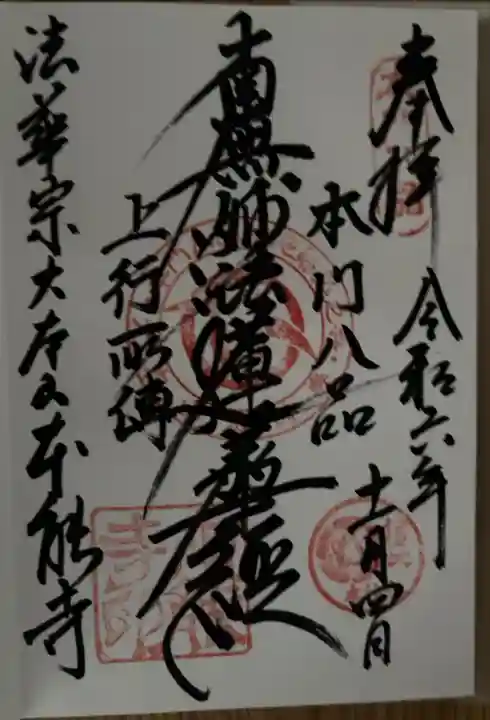 奉拝
令和六年
十一月四日
本門八品
南無妙法蓮華経
上行所傳
法華宗大本山本能寺